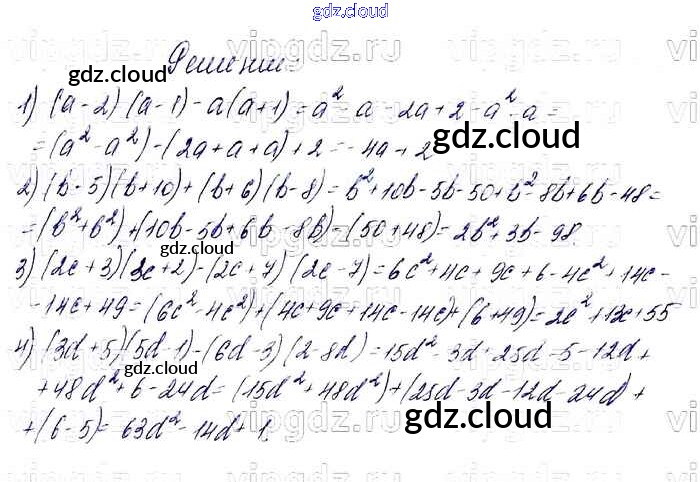 gdz.cloud
Решение:
gdz.cloud
1) (a-2)(a-1)-a(a+1)=a²-a-2a+2-a²-a=
=(a²-a²)-(2a+a+a)+2=-4a+2
gdz.cloud
2) (b-5)(b+10)+(b+6)(b-8)=b²+10b-5b-50+b²-8b+6b-48=
=(b²+b²)+(10b-5b+6b-8b)-(50+48)=2b²+3b-98.
gdz.cloud
3) (2c+3)(3c+2)-(2c+7)(2c-7)=6c²+4c+9c+6-4c²+14c-
-14c+49=(6c²-4c²)+(4c+9c+14c-14c)+(6+49)=2c²+13c+55
4) (3d+5)(5d-1)-(6d-3)(2-8d)=15d²-3d+25d-5-12d+
+48d²+6-24d=(15d²+48d²)+(25d-3d-12d-24d)+
+(6-5)=63d²-14d+1.
gdz.cloud
gdz.cloud
vipgdz.ru